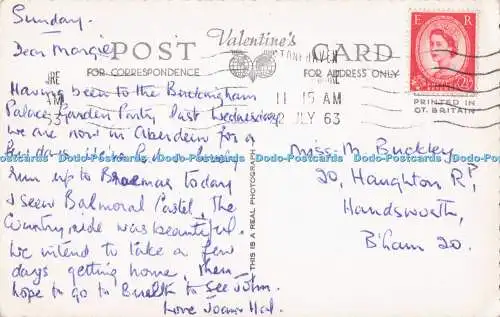 Sunday.
Dear Margie
POST Valentine's CARD
FOR CORRESPONDENCE
FOR ADDRESS ONLY
STONEHAVEN
11 15 AM
JLY 63
E R
2½
PRINTED IN
GT. BRITAIN
Having been to the Buckingham
Palace Garden Party last Wednesday
we are now in Aberdeen for a
few days
run up to Braemar today
& seen Balmoral Castel. The
Countryside was beautiful.
We intend to take a few
days getting home, then
hope to go to Builth to see John.
Love Joan & Hal.
THIS IS A REAL PHOTOGRAPH
Miss. M. Buckley
20, Haughton Rd,
Handsworth,
B'ham 20.
Dodo-Postcards.com Dodo-Postcards.com Dodo-Postcards.com Dodo-Postcards.com